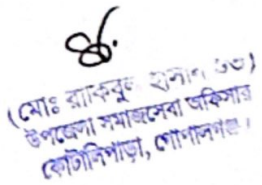 (মোঃ রাকিবুল হাসান শুভ)
উপজেলা সমাজসেবা অফিসার
কোটালিপাড়া, গোপালগঞ্জ।